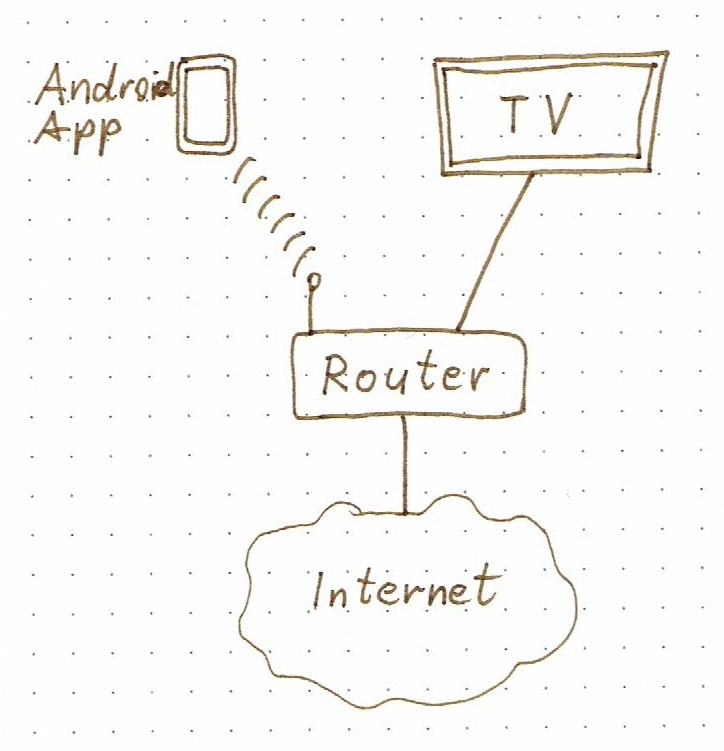 Android
App
TV
Router
Internet